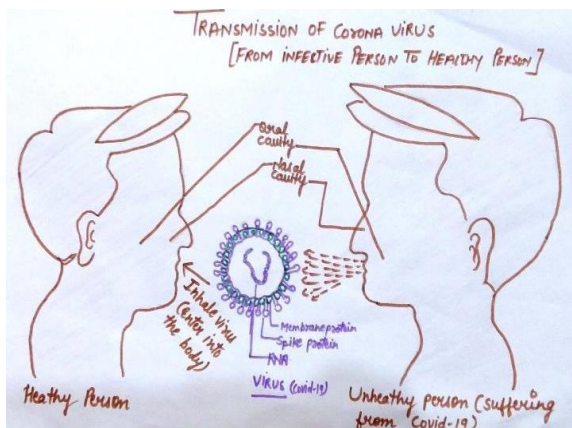 TRANSMISSION OF CORONA VIRUS
[FROM INFECTIVE PERSON TO HEALTHY PERSON]
Oral
cavity
Nasal
cavity
Inhale virus
(Enter into
the body)
Membrane protein
Spike protein
RNA
VIRUS (Covid-19)
Heathy Person
Unheathy person (suffering
from Covid-19)